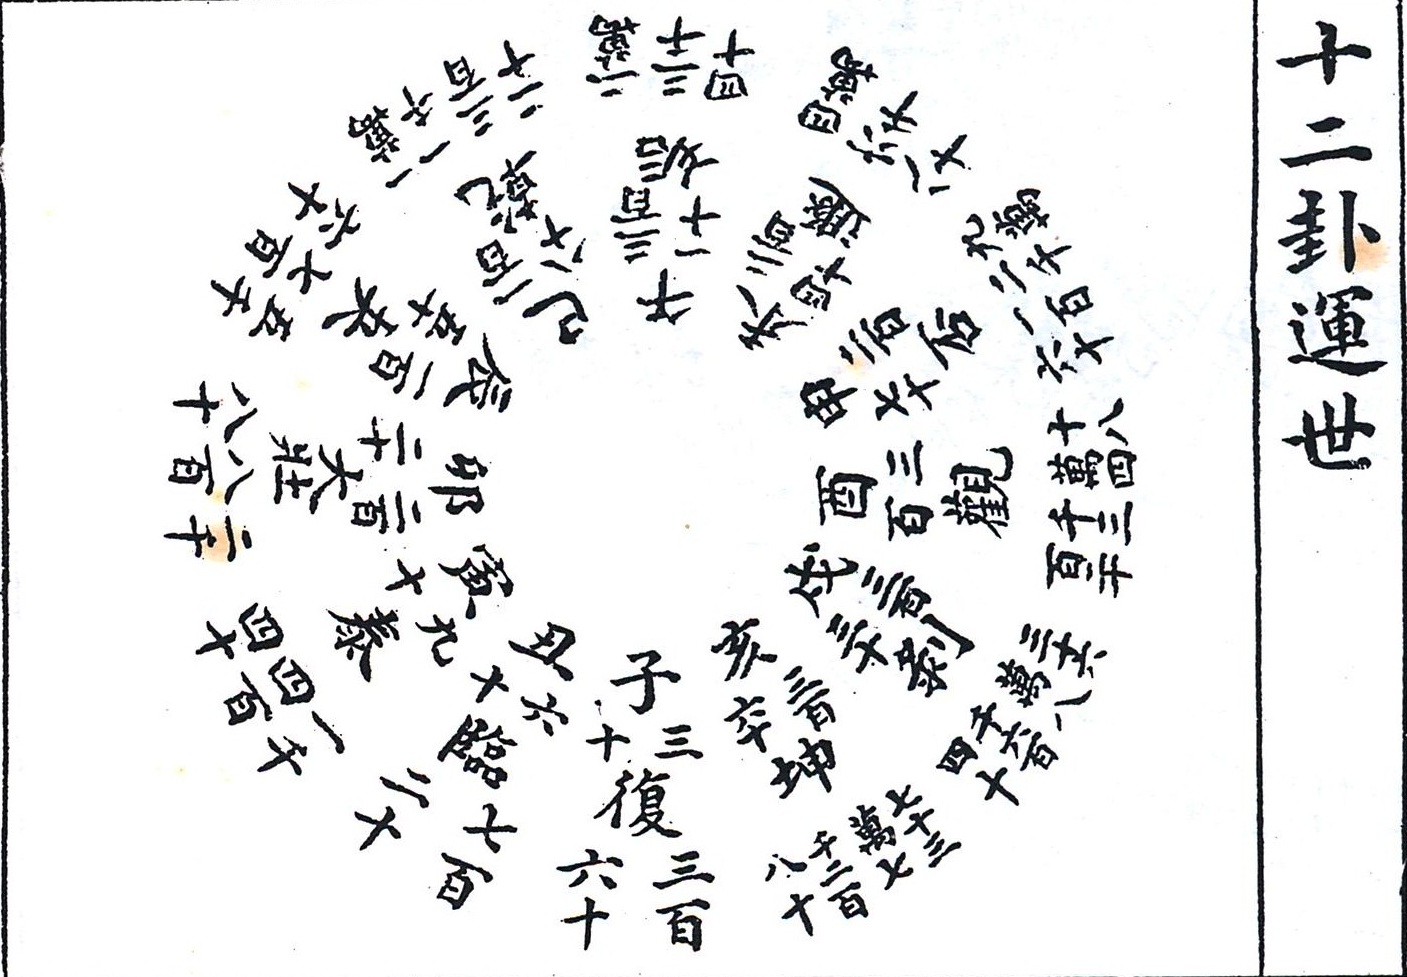 十二卦運世
子
三十
復
三百六十
丑
六十
臨
七百二十
寅
九十
泰
一千四百四十
卯
一百二十
大壯
二千八百八十
辰
一百五十
夬
五千七百六十
巳
一百八十
乾
一萬一千五百二十
午
二百一十
姤
二萬三千四十
未
二百四十
遯
四萬六千八十
申
二百七十
否
九萬二千一百六十
酉
三百
觀
十八萬四千三百二十
戌
三百三十
剝
三十六萬八千六百四十
亥
三百六十
坤
七十三萬七千二百八十